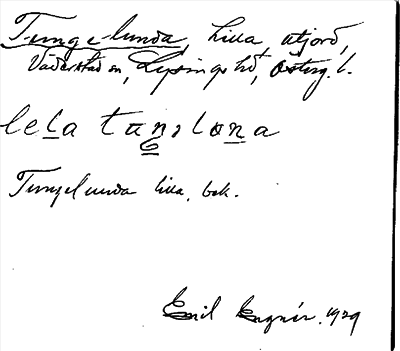 Tungelunda, Lilla, utjord,
Väderstad sn, Lysings hd, Österg. l.
leḻa tuṉəlơṉa
Tungelunda lilla, bok.
Emil 1929